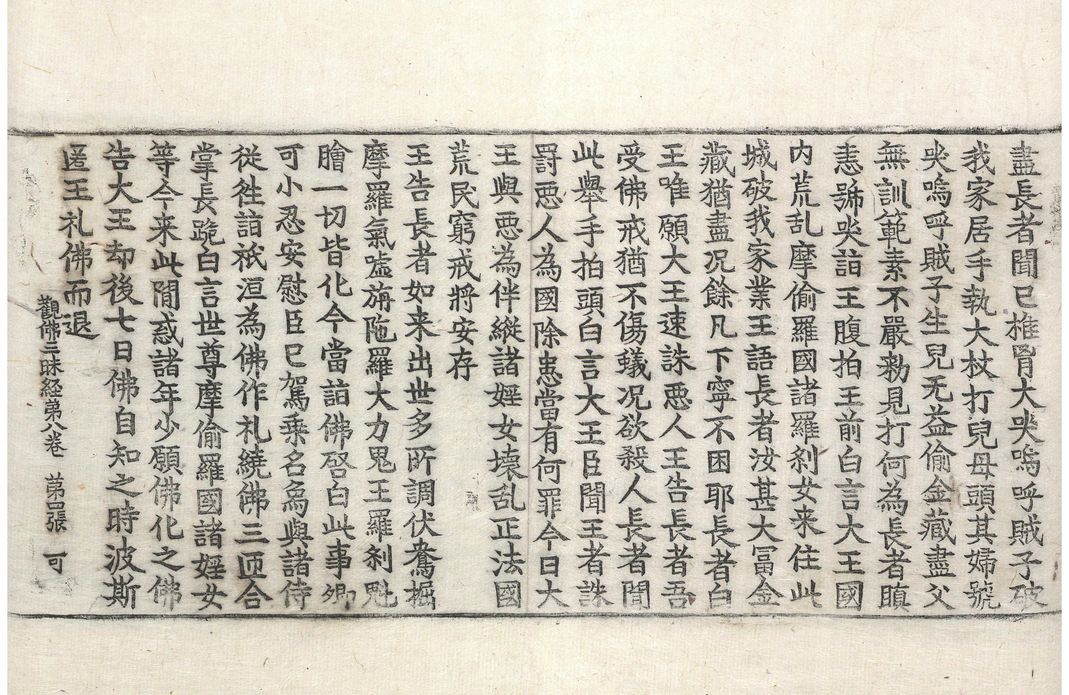 盡長者聞已椎胷大哭嗚呼賊子破
我家居手執大杖打兒母頭其婦號
哭嗚呼賊子生兒无益偷金藏盡父
無訓範素不嚴勑見打何為長者瞋
恚號哭詣王腹拍王前白言大王國
内荒乱摩偷羅國諸羅刹女来住此
城破我家業王語長者汝甚大冨金
藏猶盡况餘凡下寧不困耶長者白
王唯願大王速誅惡人王告長者吾
受佛戒猶不傷蟻况欲殺人長者聞
此舉手拍頭白言大王臣聞王者誅
罸惡人為國除患當有何罪今日大
王與惡為伴縱諸婬女壞乱正法國
荒民窮戒將安存
王告長者如来出世多所調伏鴦掘
摩羅氣嘘旃陁羅大力鬼王羅刹魁
膾一切皆化今當詣佛啓白此事卿
可小忍安慰臣已駕乘名象與諸侍
從徃詣祇洹為佛作礼繞佛三匝合
掌長跪白言世尊摩偷羅國諸婬女
等今来此間惑諸年少願佛化之佛
告大王却後七日佛自知之時波斯
匿王礼佛而退
觀佛三昧経第八卷 第四張 可